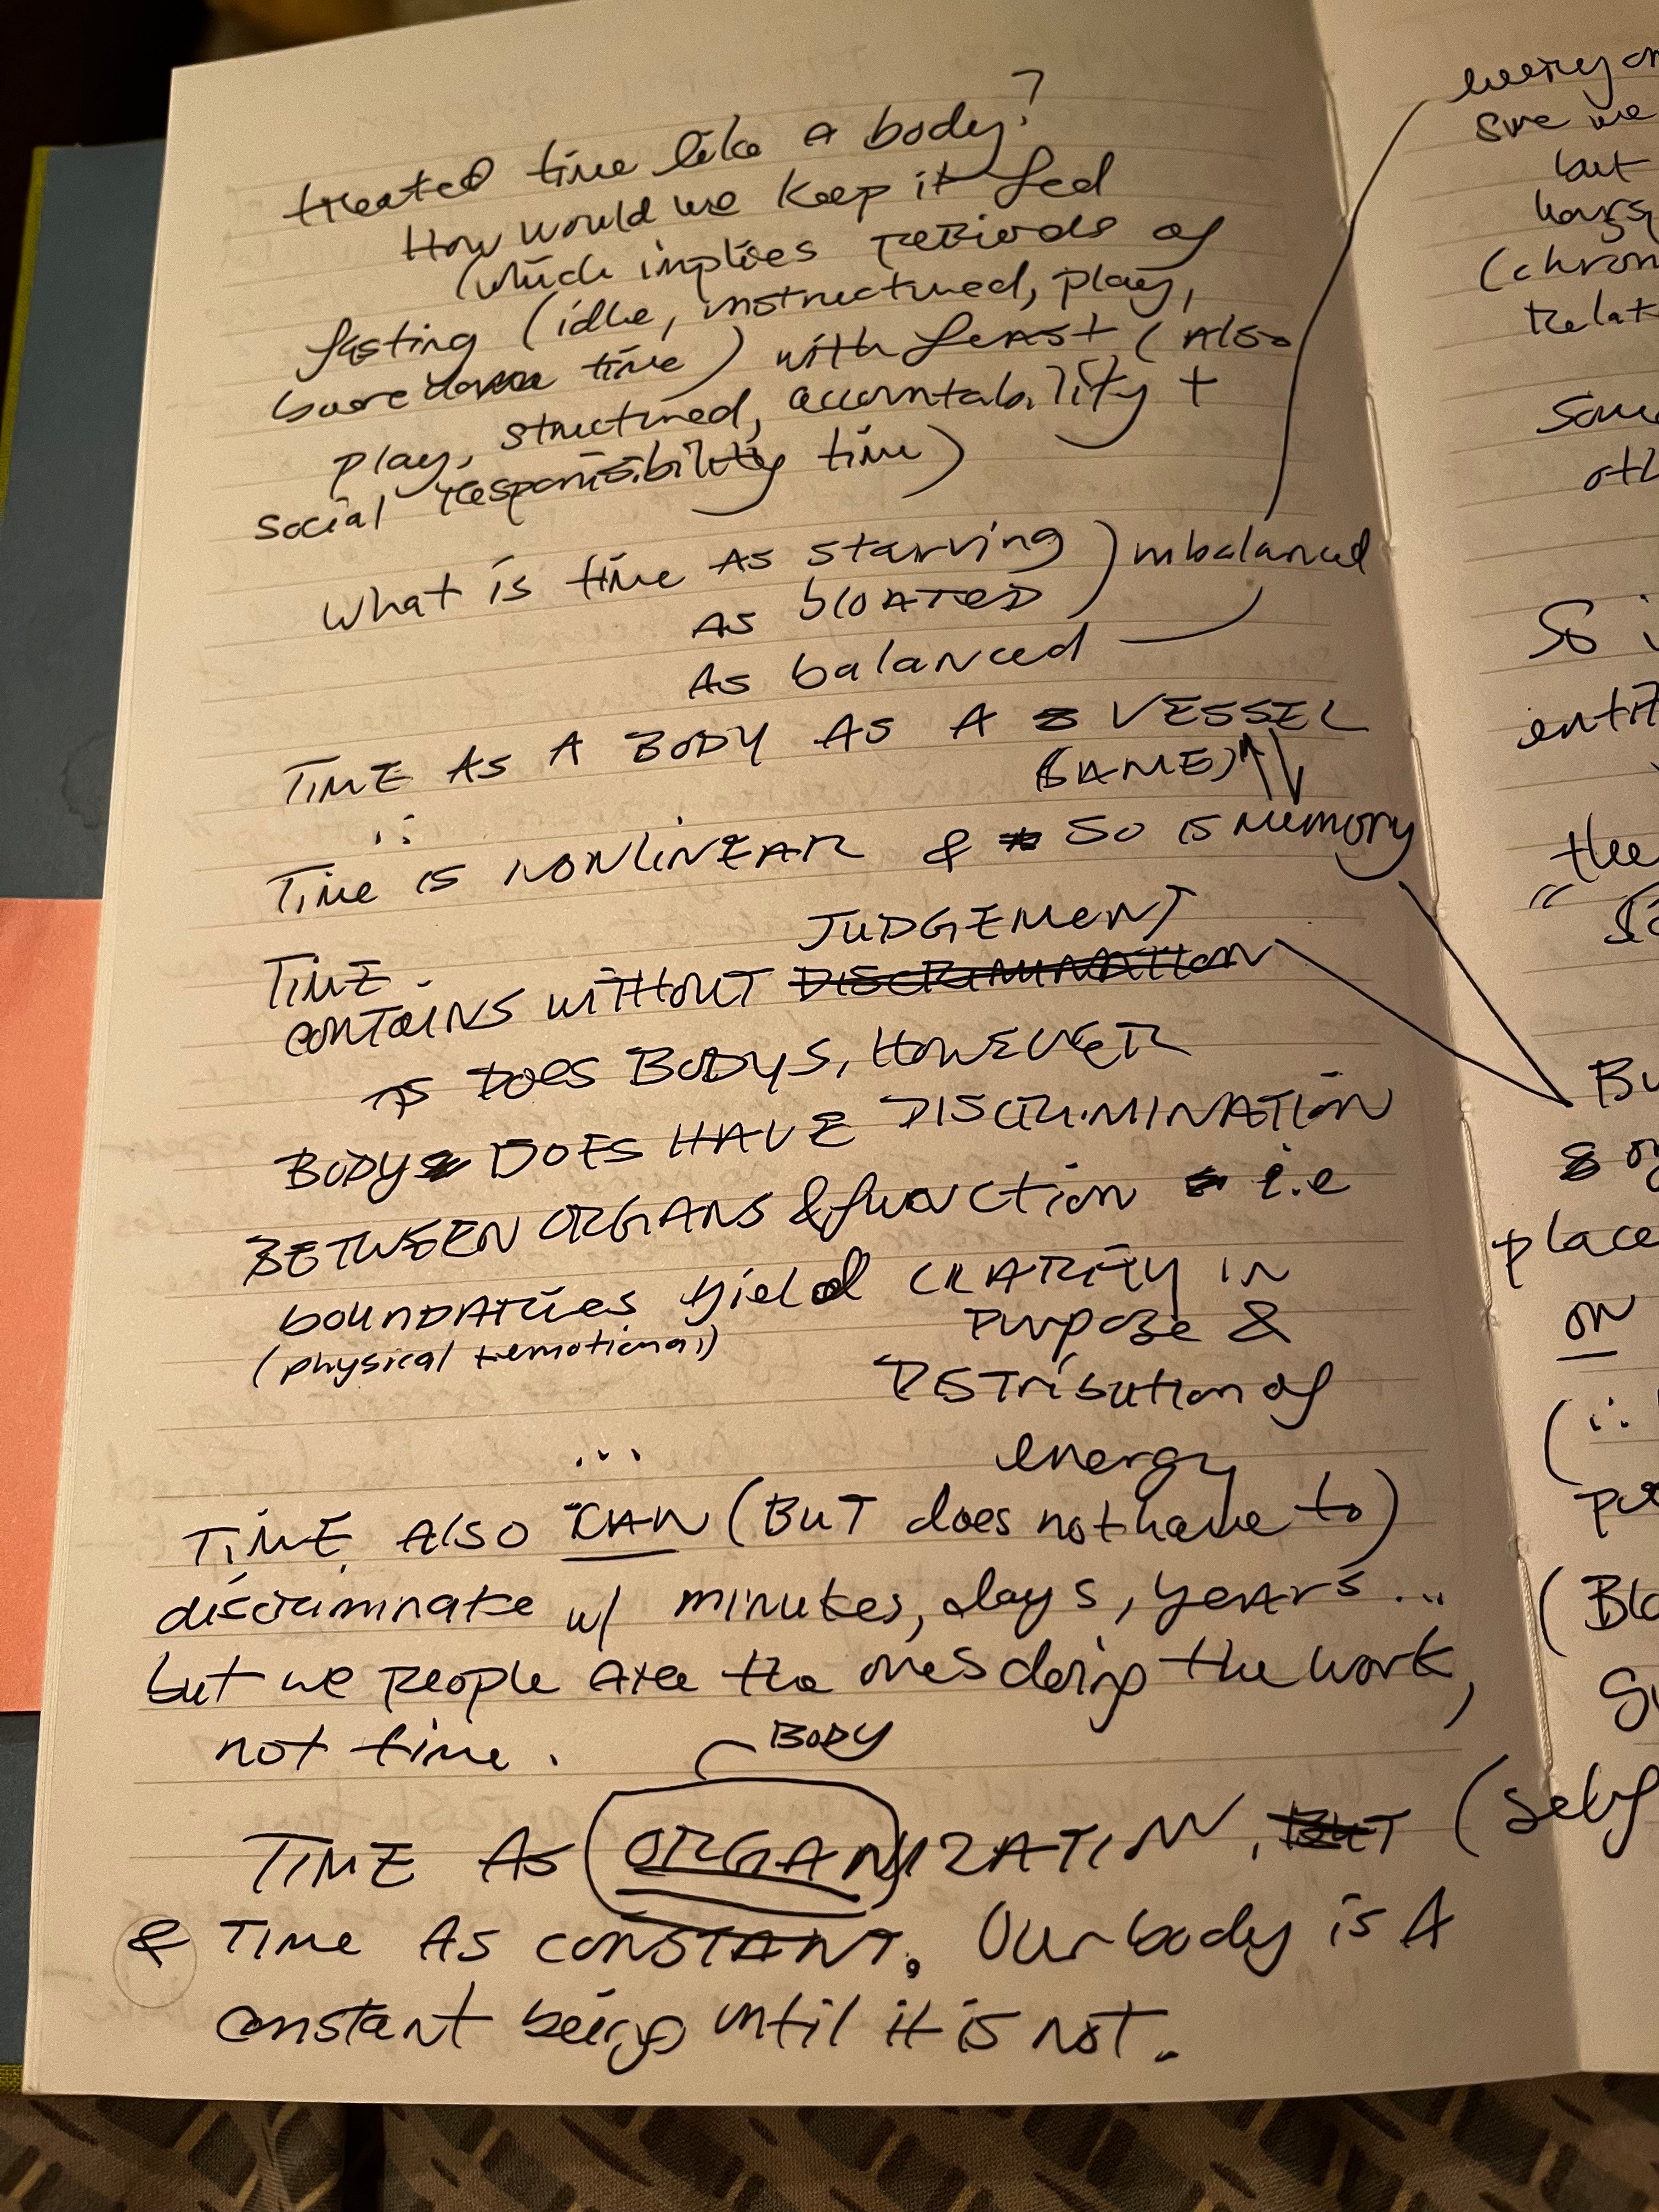 treated time like a body?
How would we keep it fed
(which implies periods of
fasting (idle, unstructured, play,
boredom time) with feast (also
play, structured, accountability +
social responsibility time)
What is time AS starving ) imbalanced
AS bloATED
AS balanced
TIME AS A BODY AS A VESSEL
(SAME)
∴
Time is NONLINEAR & So is memory
JUDGEMENT
TIME
CONTAINS WITHOUT DISCRIMINATION
AS DOES BODYS, HOWEVER
BODY DOES HAVE DISCRIMINATION
BETWEEN ORGANS & function i.e
boundaries yield CLARITY IN
(physical + emotional) Purpose &
DISTribution of
energy
...
TIME Also CAN (BUT does not have to)
discriminate w/ minutes, days, years...
but we people are the ones doing the work,
not time.
BODY
TIME AS ORGANIZATION, BUT (self
& TIME AS CONSTANT. Our body is A
constant being until it is not.
sure we
but
hours
(chron
relat
So i
entit
the
"
Bu
place
on
(∴
(Blo